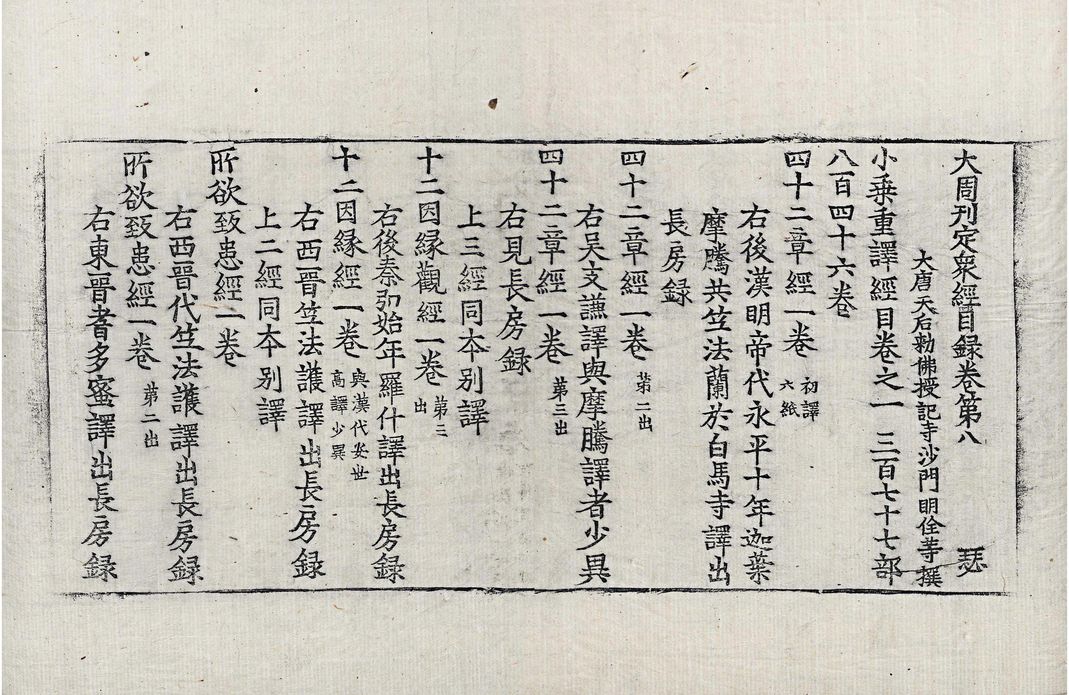 大周刊定衆經目録卷第八 瑟
大唐天后勅佛授記寺沙門明佺䓁撰
小乗重譯經目卷之一 三百七十七部
八百四十六卷
四十二章經一卷 初譯 六紙
右後漢明帝代永平十年迦葉
摩騰共竺法蘭於白馬寺譯出
長房録
四十二章經一卷 第二出
右吴支謙譯與摩騰譯者少異
四十二章經一卷 第三出
右見長房録
上三經同夲别譯
十二因縁觀經一卷 第二出
右後秦弘始年羅什譯出長房録
十二因縁經一卷 與漢代安世高譯少異
右西晋竺法護譯出長房録
上二經同夲别譯
所欲致患經一卷
右西晋代竺法護譯出長房録
所欲致患經一卷 第二出
右東晋耆多蜜譯出長房録